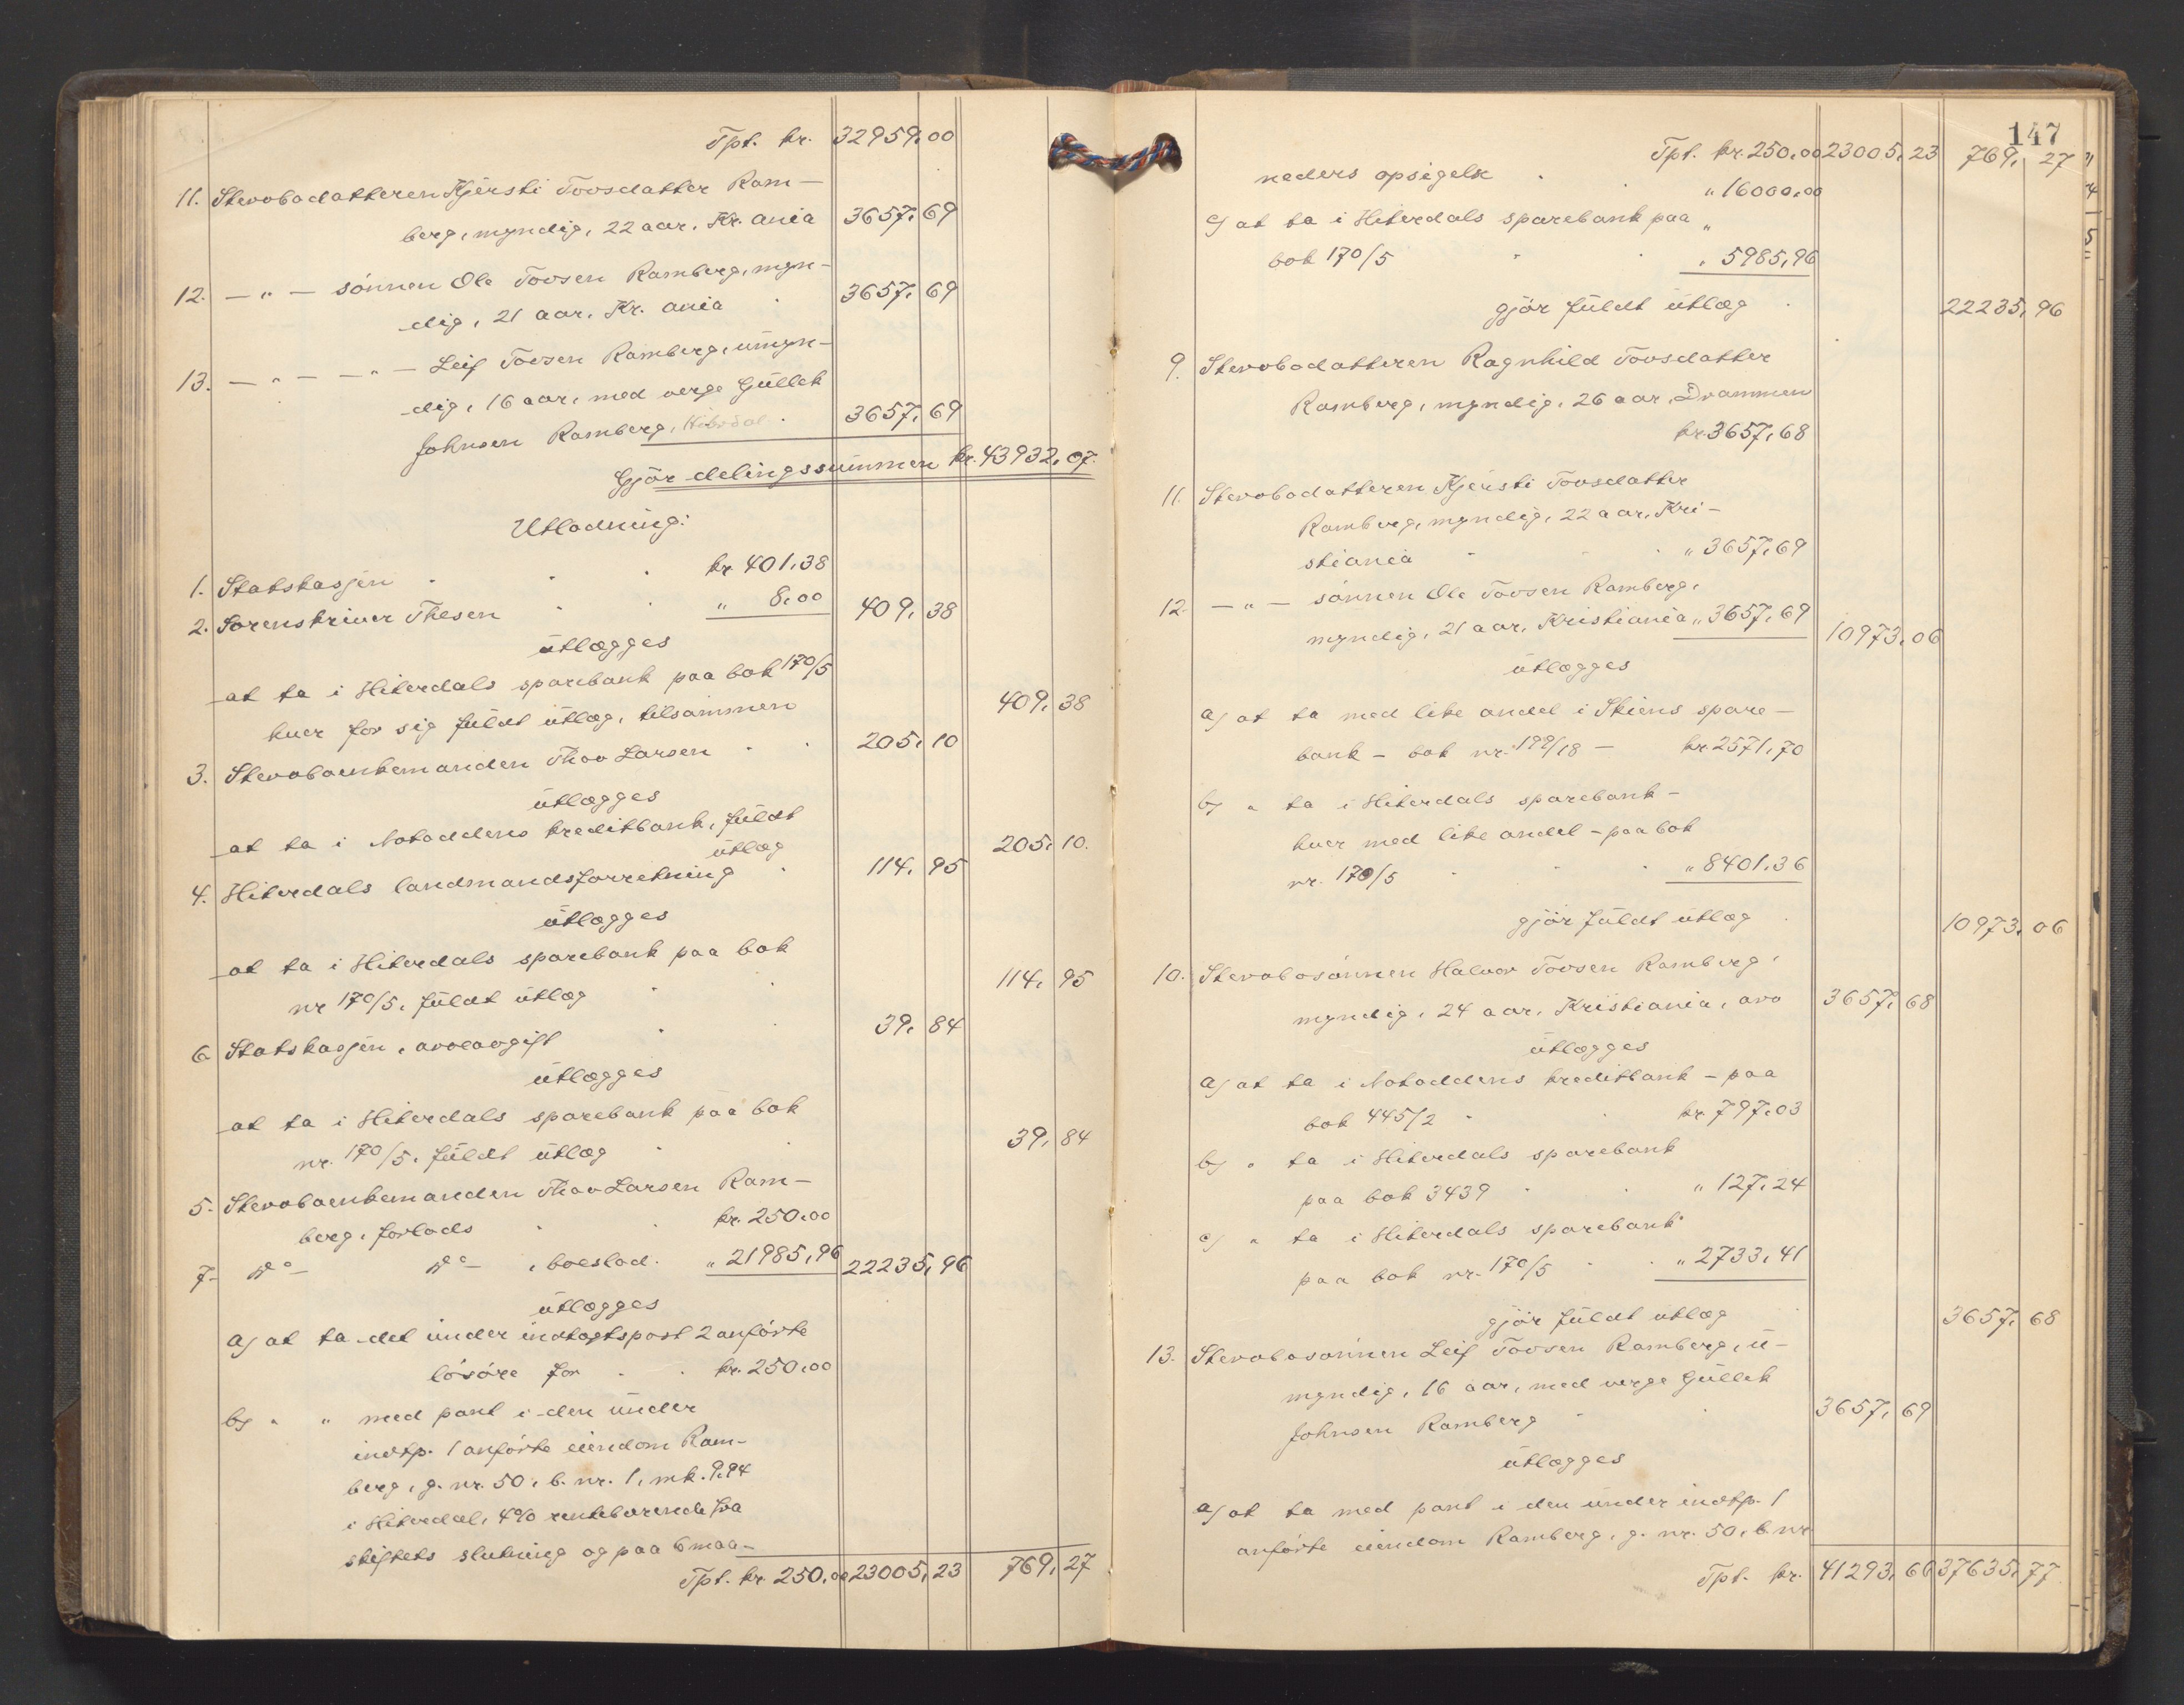 Tpt. kr. 32959,00
11. Stervbodatteren Kjersti Tovsdatter Ram-
berg, myndig, 22 aar, Kr. ania 3657,69
12. — " — sønnen Ole Tovsen Ramberg, myn-
dig, 21 aar, Kr. ania 3657,69
13. — " — — " — Leif Tovsen Ramberg, umyn-
dig, 16 aar, med verge Gullek
Johnsen Ramberg, Hiterdal. 3657,69
Gjør delingssummen kr. 43932,07.
Utlodning:
1. Statskassen kr 401,38
2. Sorenskriver Thesen " 8,00 409,38
utlægges
at ta i Hiterdals sparebank paa bok 170/5
hver for sig fuldt utlæg, tilsammen 409,38
3. Stervboenkemanden Thov Larsen 205,10
utlægges
at ta i Notoddens kreditbank, fuldt
utlæg 205,10.
4. Hiterdals landmandsforretning 114,95
utlægges
at ta i Hiterdals sparebank paa bok
nr 170/5, fuldt utlæg 114,95
6. Statskassen, arveavgift 39,84
utlægges
at ta i Hiterdals sparebank paa bok
nr. 170/5, fuldt utlæg 39,84
5. Stervboenkemanden Thov Larsen Ram-
berg, forlods kr. 250,00
7. do do , boeslod. " 21985,96 22235,96
utlægges
a) at ta det under indtægtspost 2 anførte
løsøre for kr. 250,00
b) " " med pant i den under
indtp. 1 anførte eiendom Ram-
berg, g. nr. 50, b. nr. 1, mk. 9,94
i Hiterdal, 4% rentebærende fra
skiftets slutning og paa 6 maa-
Tpt. kr. 250,00 23005,23 769,27
147
Tpt. kr. 250,00 23005,23 769,27
neders opsigelse " 16000,00
c) at ta i Hiterdals sparebank paa "
bok 170/5 " 5985,96
gjør fuldt utlæg 22235,96
9. Stervbodatteren Ragnhild Tovsdatter
Ramberg, myndig, 26 aar, Drammen
kr. 3657,68
11. Stervbodatteren Kjersti Tovsdatter
Ramberg, myndig, 22 aar, Kri-
stiania " 3657,69
12. — " — sønnen Ole Tovsen Ramberg,
myndig, 21 aar, Kristiania " 3657,69 10973,06
utlægges
a) at ta med like andel i Skiens spare-
bank - bok nr. 199/18 - kr 2571,70
b) " ta i Hiterdals sparebank -
hver med like andel - paa bok
nr. 170/5 " 8401,36
gjør fuldt utlæg 10973,06
10. Stervbosønnen Halvor Tovsen Ramberg,
myndig, 24 aar, Kristiania, arv 3657,68
utlægges
a) at ta i Notoddens kreditbank - paa
bok 445/2 kr. 797,03
b) " ta i Hiterdals sparebank
paa bok 3439 " 127,24
c) " ta i Hiterdals sparebank
paa bok nr. 170/5 " 2733,41
gjør fuldt utlæg 3657,68
13. Stervbosønnen Leif Tovsen Ramberg, u-
myndig, 16 aar, med verge Gullek
Johnsen Ramberg 3657,69
utlægges
a) at ta med pant i den under indtp. 1
anførte eiendom Ramberg, g. nr. 50, b. nr
Tpt. kr. 41293,66 37635,77